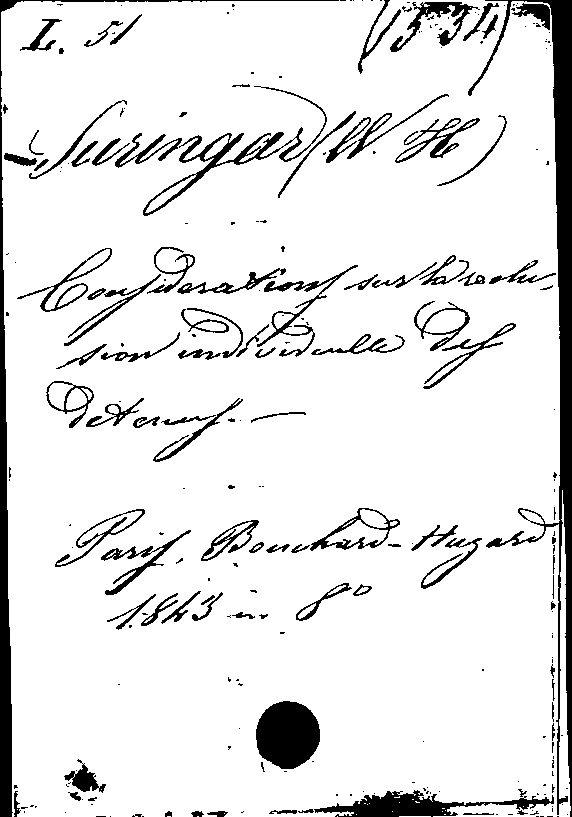 L. 51 (1534)
Suringar (W. H)
Considerations sur la reclu-
sion individuelle des
detenus. —
Paris, Bouchard-Huzard
1843 in 8°